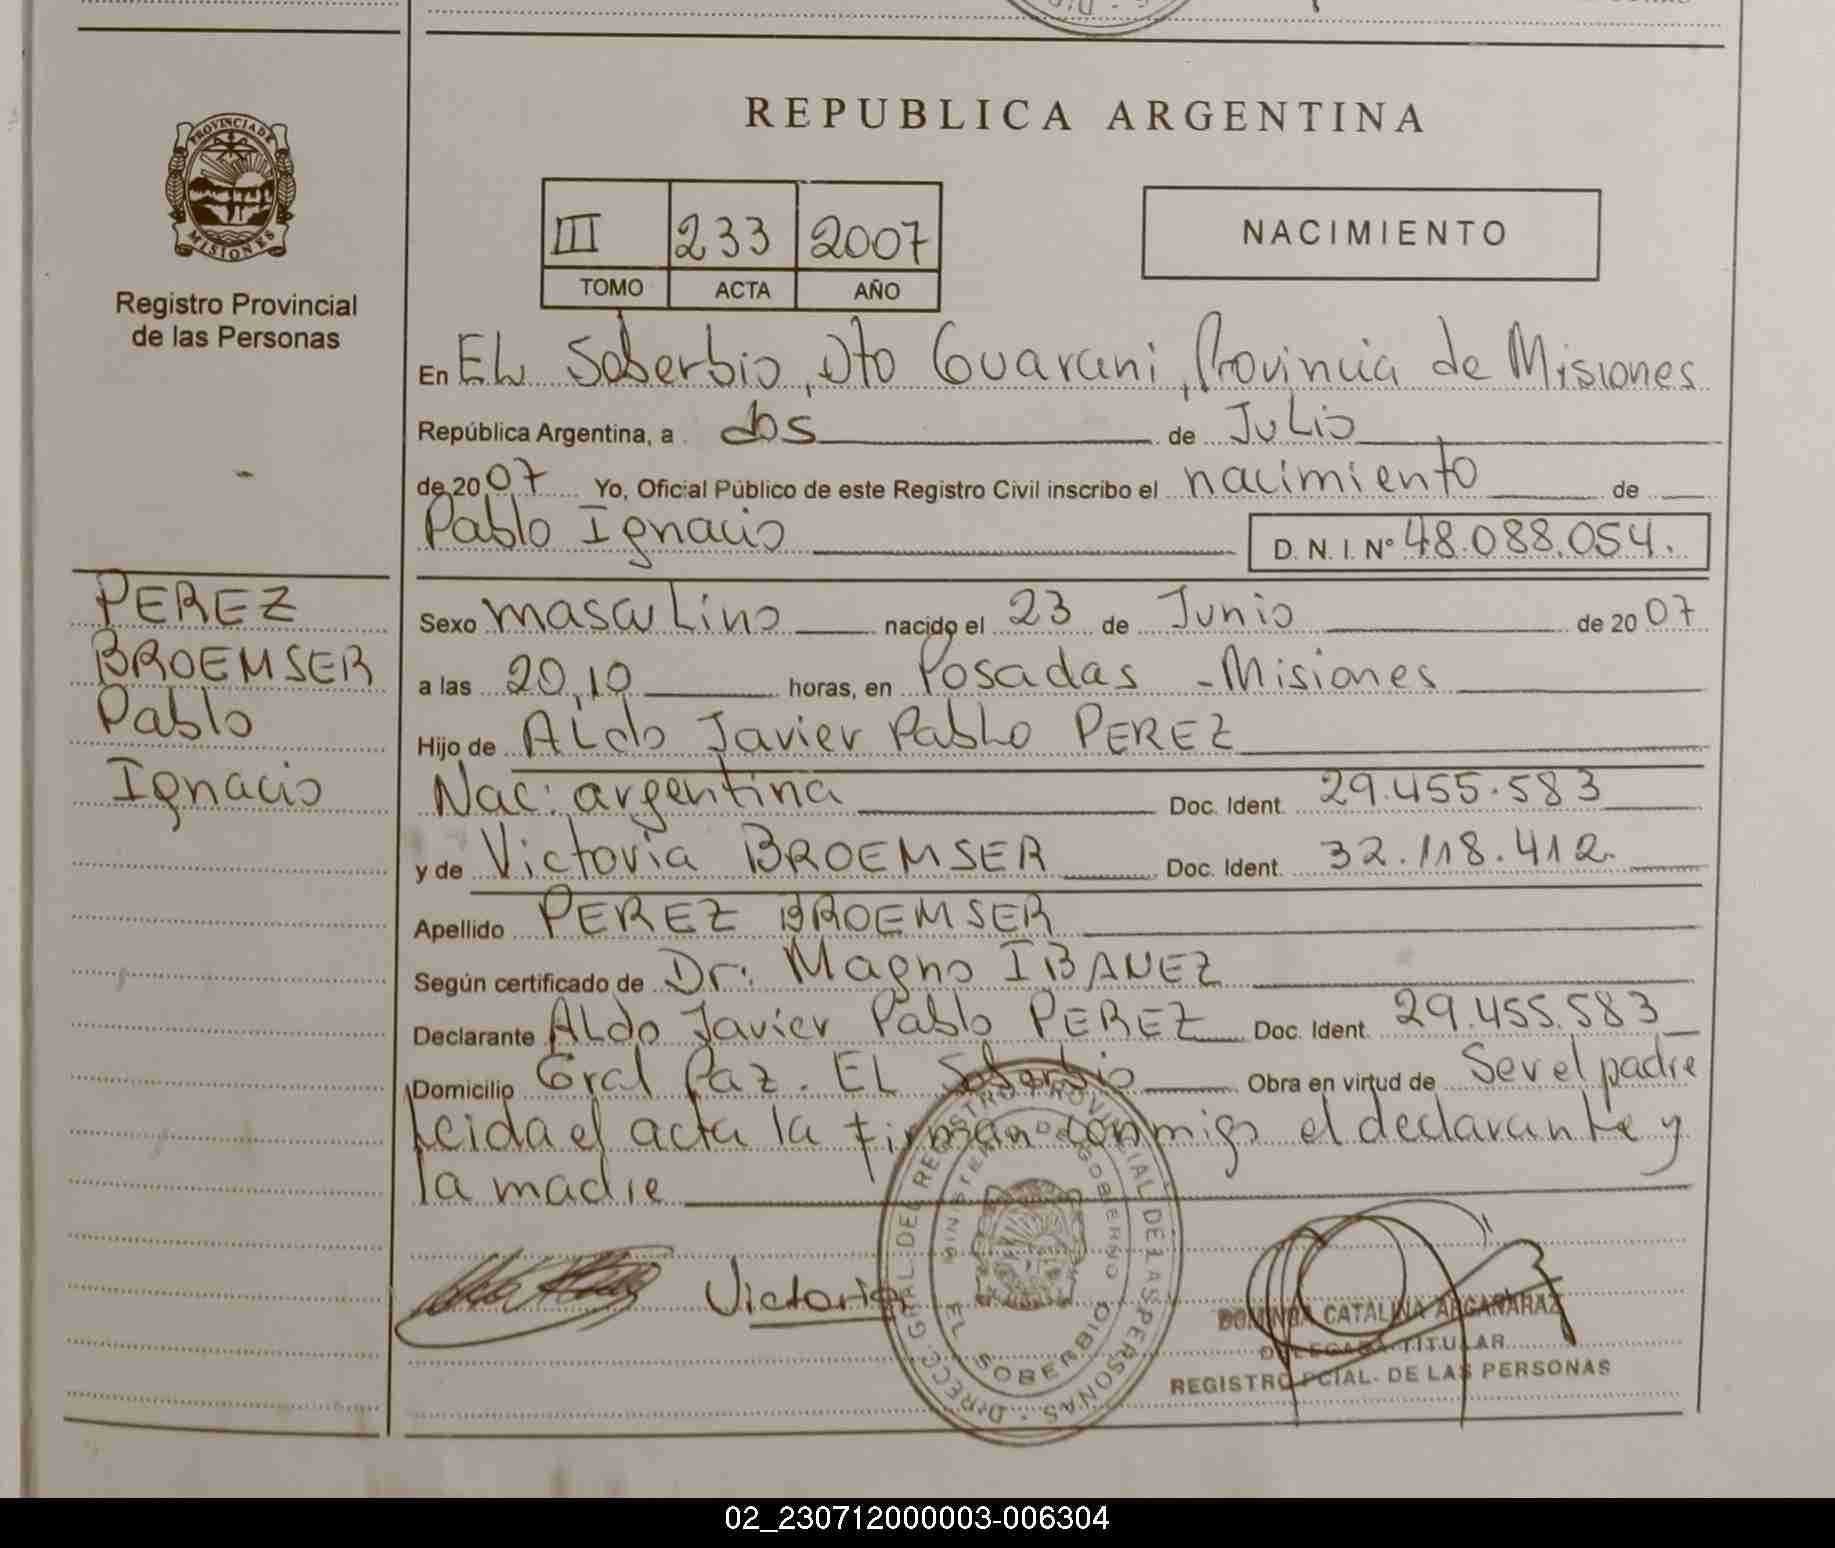 REPUBLICA ARGENTINA
PROVINCIA DE MISIONES
Registro Provincial
de las Personas
III 233 2007
TOMO ACTA AÑO
NACIMIENTO
En EL Soberbio, Dto Guarani, Provincia de Misiones
República Argentina, a dos de Julio
de 2007 Yo, Oficial Público de este Registro Civil inscribo el nacimiento de
Pablo Ignacio D. N. I. Nº 48.088.054.
PEREZ
BROEMSER
Pablo
Ignacio
Sexo masculino nacido el 23 de Junio de 2007
a las 20,10 horas, en Posadas - Misiones
Hijo de Aldo Javier Pablo PEREZ
Nac: argentina Doc. Ident. 29.455.583
y de Victoria BROEMSER Doc. Ident. 32.118.412.
Apellido PEREZ BROEMSER
Según certificado de Dr: Magno IBANEZ
Declarante ALdo Javier Pablo PEREZ Doc. Ident. 29.455.583
Domicilio Gral Paz. EL Soberbio Obra en virtud de Ser el padre
Leida el acta la firman conmigo el declarante y
la madre
Victoria
DIRECC. GRAL. DEL REGISTRO PROVINCIAL DE LAS PERSONAS
MINISTERIO DE GOBIERNO
EL SOBERBIO
DOMINGA CATALINA ARGAÑARAZ
DELEGADA TITULAR
REGISTRO PCIAL. DE LAS PERSONAS
02_230712000003-006304